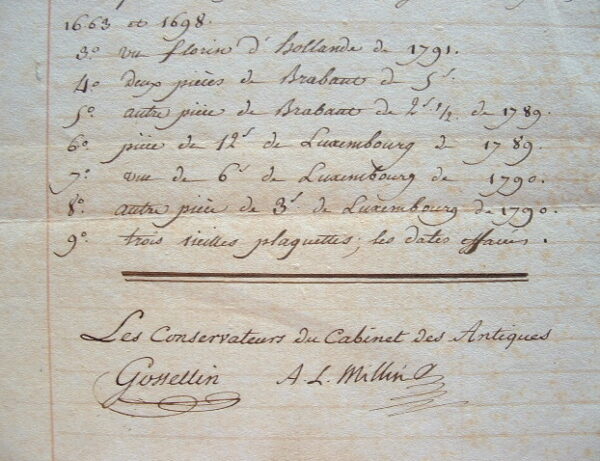 1663 et 1698.
3º un florin d'Hollande de 1791.
4º deux pièces de Brabant de 5ˢ.
5º autre pièce de Brabant de 2ˢ.½ de 1789.
6º pièce de 12ˢ de Luxembourg de 1789.
7º une de 6ˢ de Luxembourg de 1790.
8º autre pièce de 3ˢ de Luxembourg de 1790.
9º trois vieilles plaquettes; les dates effacées.
Les Conservateurs du Cabinet des Antiques
Gossellin A. L. Millin